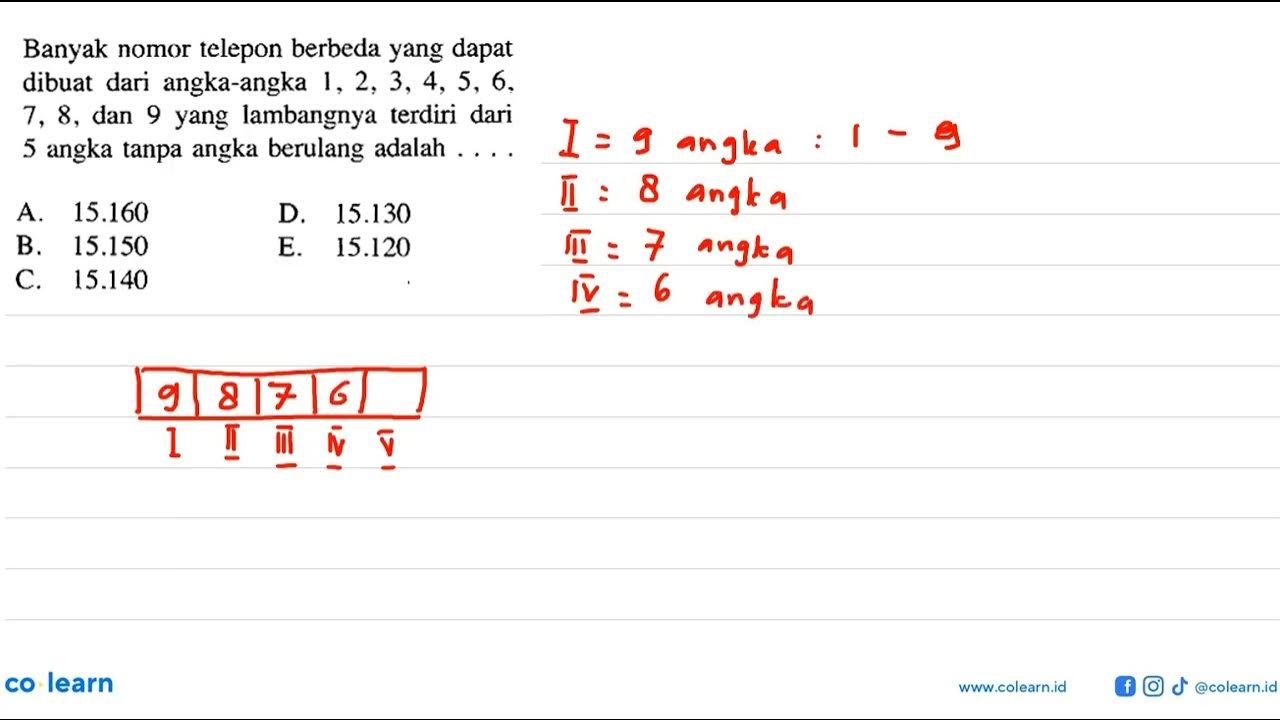 Banyak nomor telepon berbeda yang dapat
dibuat dari angka-angka 1, 2, 3, 4, 5, 6,
7, 8, dan 9 yang lambangnya terdiri dari
5 angka tanpa angka berulang adalah . . . .
A. 15.160 D. 15.130
B. 15.150 E. 15.120
C. 15.140
I = 9 angka : 1 - 9
II = 8 angka
III = 7 angka
IV = 6 angka
9 8 7 6
I II III IV V
co learn
www.colearn.id @colearn.id